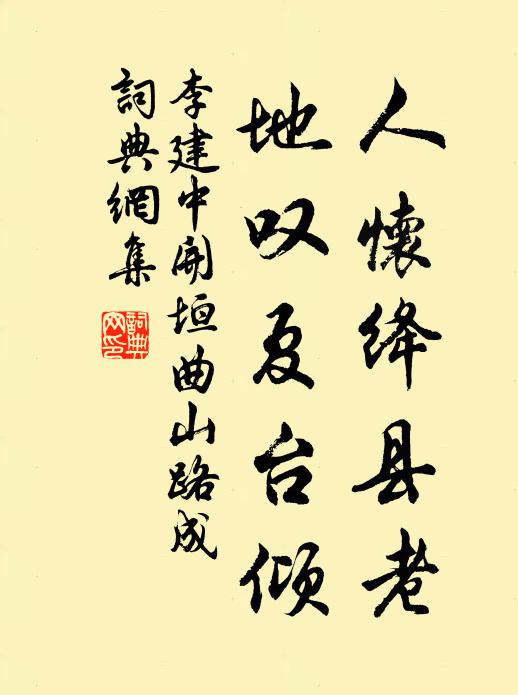 人懷绛县老
地叹夏台倾
李建中開垣曲山路成
詞典網集
詞典网印